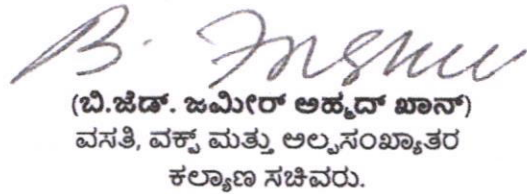 (ಬಿ.ಜೆಡ್. ಜಮೀರ್ ಅಹ್ಮದ್ ಖಾನ್)
ವಸತಿ, ವಕ್ಫ್ ಮತ್ತು ಅಲ್ಪಸಂಖ್ಯಾತರ
ಕಲ್ಯಾಣ ಸಚಿವರು.